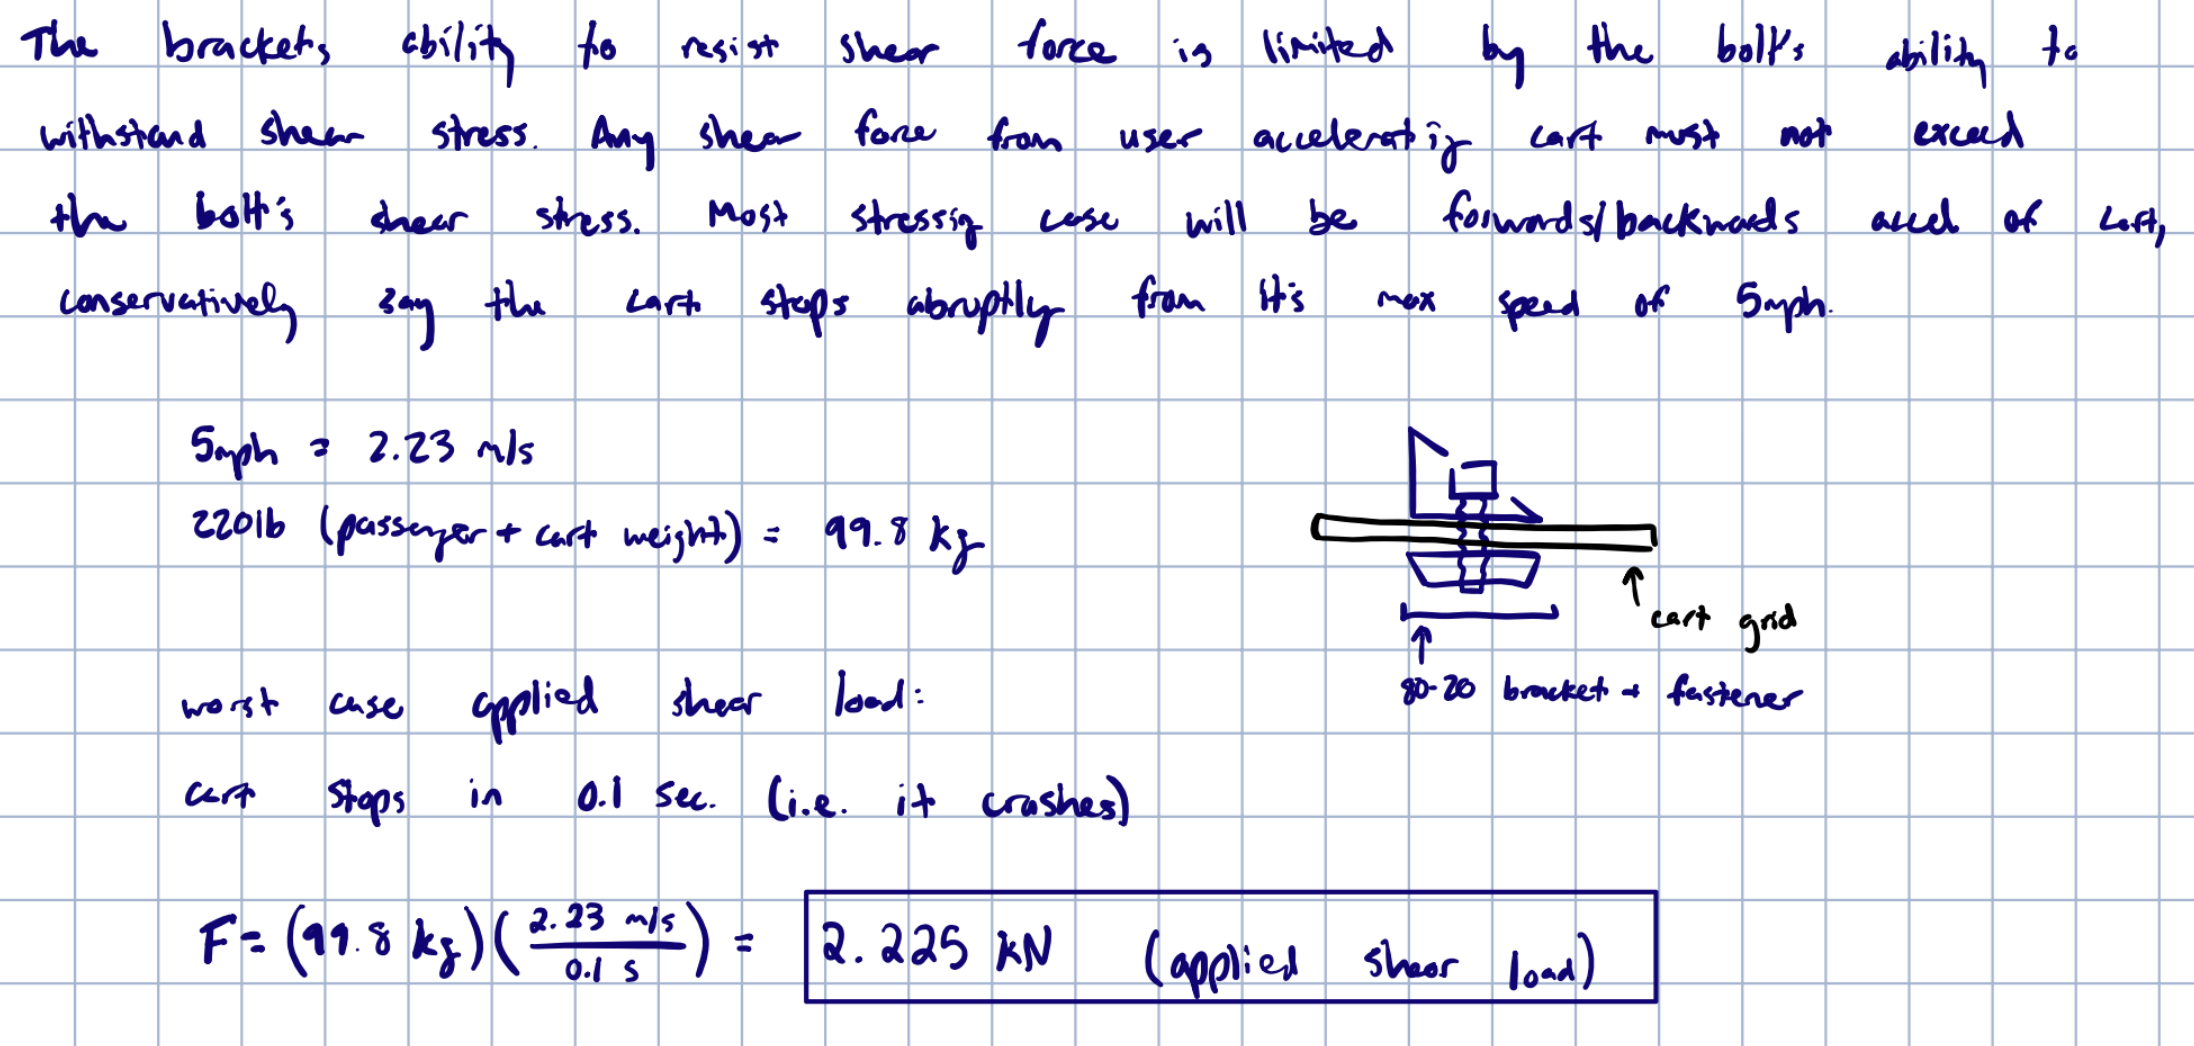 The brackets ability to resist shear force is limited by the bolt's ability to
withstand shear stress. Any shear force from user acceleratig cart must not exceed
the bolt's shear stress. Most stressig case will be forwards/backwards accel of cart,
conservatively say the cart stops abruptly from it's max speed of 5mph.
5mph = 2.23 m/s
220lb (passenger + cart weight) = 99.8 kg
cart grid
80-20 bracket + fastener
worst case applied shear load:
cart stops in 0.1 sec. (i.e. it crashes)
F = (99.8 kg)(2.23 m/s / 0.1 s) = 2.225 kN (applied shear load)